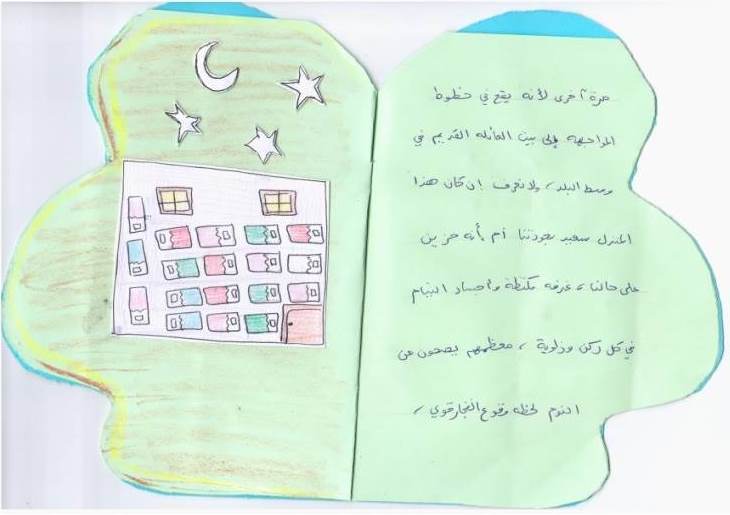 مرة أخرى لأنه يقع في خطوط
المواجهة إلى بيت العائله القديم في
وسط البلد، ولا نعرف إن كان هذا
المنزل سعيد بعودتنا أم أنه حزين
على حالنا، غرفه مكتظة وأجساد النيام
في كل ركن وزاوية، معظمهم يصحون من
النوم لحظه وقوع انفجار قوي،